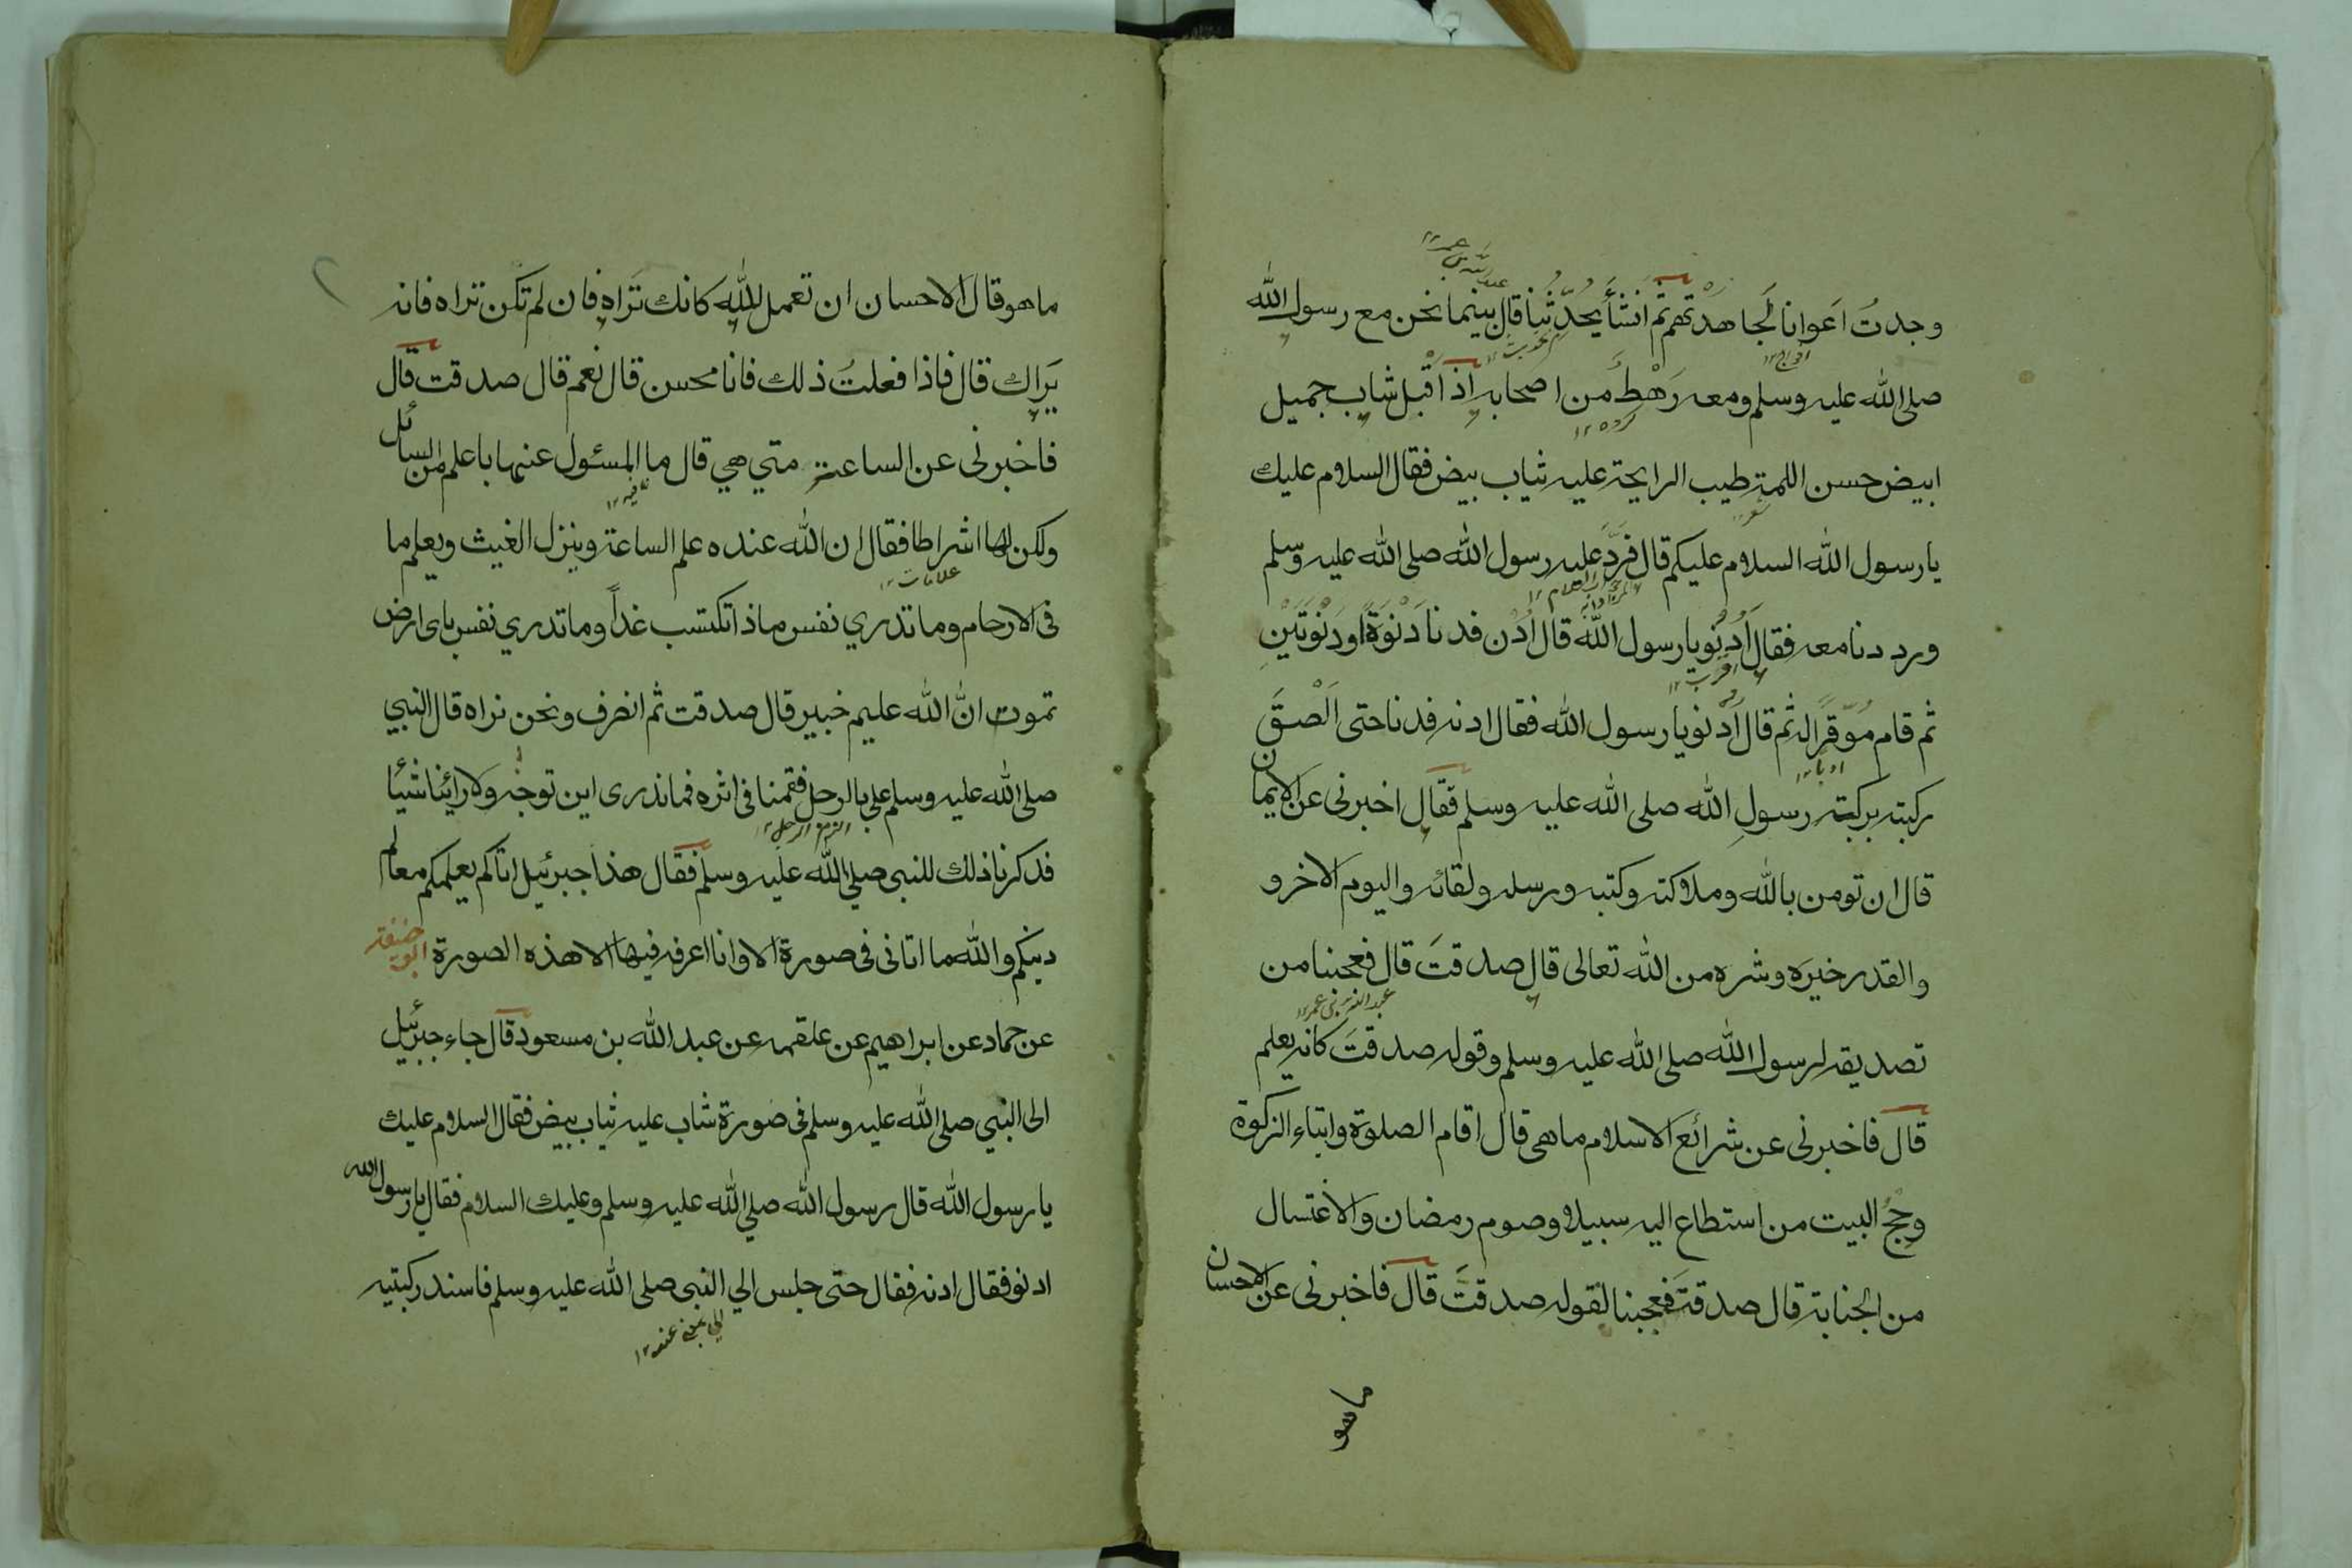 وجدتُ اَعوانا لَجاهدتهم ثم اَنشأ يحدّثُنا قال بينما نحن مع رسول الله
صلى الله عليه وسلم ومعه رَهْط من اصحابه اذ اقبل شاب جميل
ابيض حسن اللمة طيب الرايحة عليه ثياب بيض فقال السلام عليك
يا رسول الله السلام عليكم قال فردَّ عليه رسول الله صلى الله عليه وسلم
ورددنا معه فقال اَدْنُو يا رسول الله قال اُدْن فدنا دَنْوَةً او دَنْوَتَيْنِ
ثم قام مُوَقِّرًا له ثم قال اَدْنو يا رسول الله فقال ادنه فدنا حتى اَلْصَقَ
ركبته بركبته رسولِ الله صلى الله عليه وسلم فقال اخبرنى عن الايمان
قال ان تومن بالله وملائكته وكتبه ورسله ولقائه واليوم الاخر و
والقدر خيره وشره من الله تعالى قال صدقتَ قال فعجبنا من
تصديقه لرسول الله صلى الله عليه وسلم وقوله صدقتَ كانه يعلم
قال فاخبرنى عن شرائع الاسلام ما هى قال اقام الصلوة وايتاء الزكوة
وحجُّ البيت من استطاع اليه سبيلا وصوم رمضان والاغتسال
من الجنابة قال صدقتَ فعجبنا لقوله صدقتَ قال فاخبرنى عن الاحسان
ما هو
ما هو قال الاحسان ان تعمل لِلّٰه كانك تَرَاه فان لم تكن تراه فانه
يَرَاك قال فاذا فعلتُ ذلك فانا محسن قال نعم قال صدقت قال
فاخبرنى عن الساعة متي هي قال ما المسئول عنها باعلم من السائل
ولكن لها اشراطا فقال ان الله عنده علم الساعة وينزل الغيث ويعلم ما
فى الارحام وما تدري نفس ماذا تكتسب غداً وما تدري نفس باى ارض
تموت انَّ الله عليم خبير قال صدقت ثم انصرف ونحن نراه قال النبي
صلى الله عليه وسلم علي بالرجل فقمنا فى اثره فما ندرى اين توجّه ولا رائينا شيئا
فذكرنا ذلك للنبى صلي الله عليه وسلم فقال هذا جبرئيل اتاكم يعلمكم معالم
دينكم والله ما اتانى فى صورة الا وانا اعرفه فيها الا هذه الصورة ابو حنيفة
عن حماد عن ابراهيم عن علقمه عن عبد الله بن مسعود قال جاء جبرئيل
الى النبي صلى الله عليه وسلم فى صورة شاب عليه ثياب بيض فقال السلام عليك
يا رسول الله قال رسول الله صلي الله عليه وسلم وعليك السلام فقال يا رسول الله
ادنو فقال ادنه فقال حتى جلس الي النبى صلى الله عليه وسلم فاسند ركبتيه